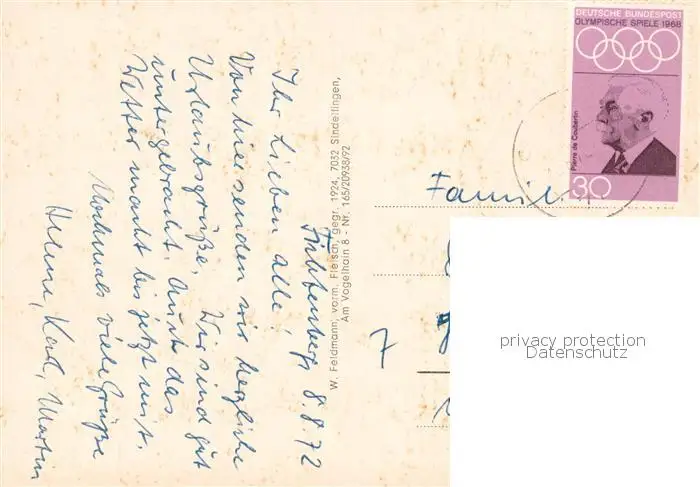 Ihr Lieben alle! 8.8.72
Von hier senden wir herzliche
Urlaubsgrüße. Wir sind gut
untergebracht. Auch das
Wetter macht bis jetzt mit.
Nochmals viele Grüße
Helene, Karl, Martin
W. Feldmann, vorm. Fleisch, gegr. 1924, 7032 Sindelfingen,
Am Vogelhain 8 - Nr. 165/20938/92
DEUTSCHE BUNDESPOST
OLYMPISCHE SPIELE 1968
Pierre de Coubertin
30
Famil
7
privacy protection
Datenschutz